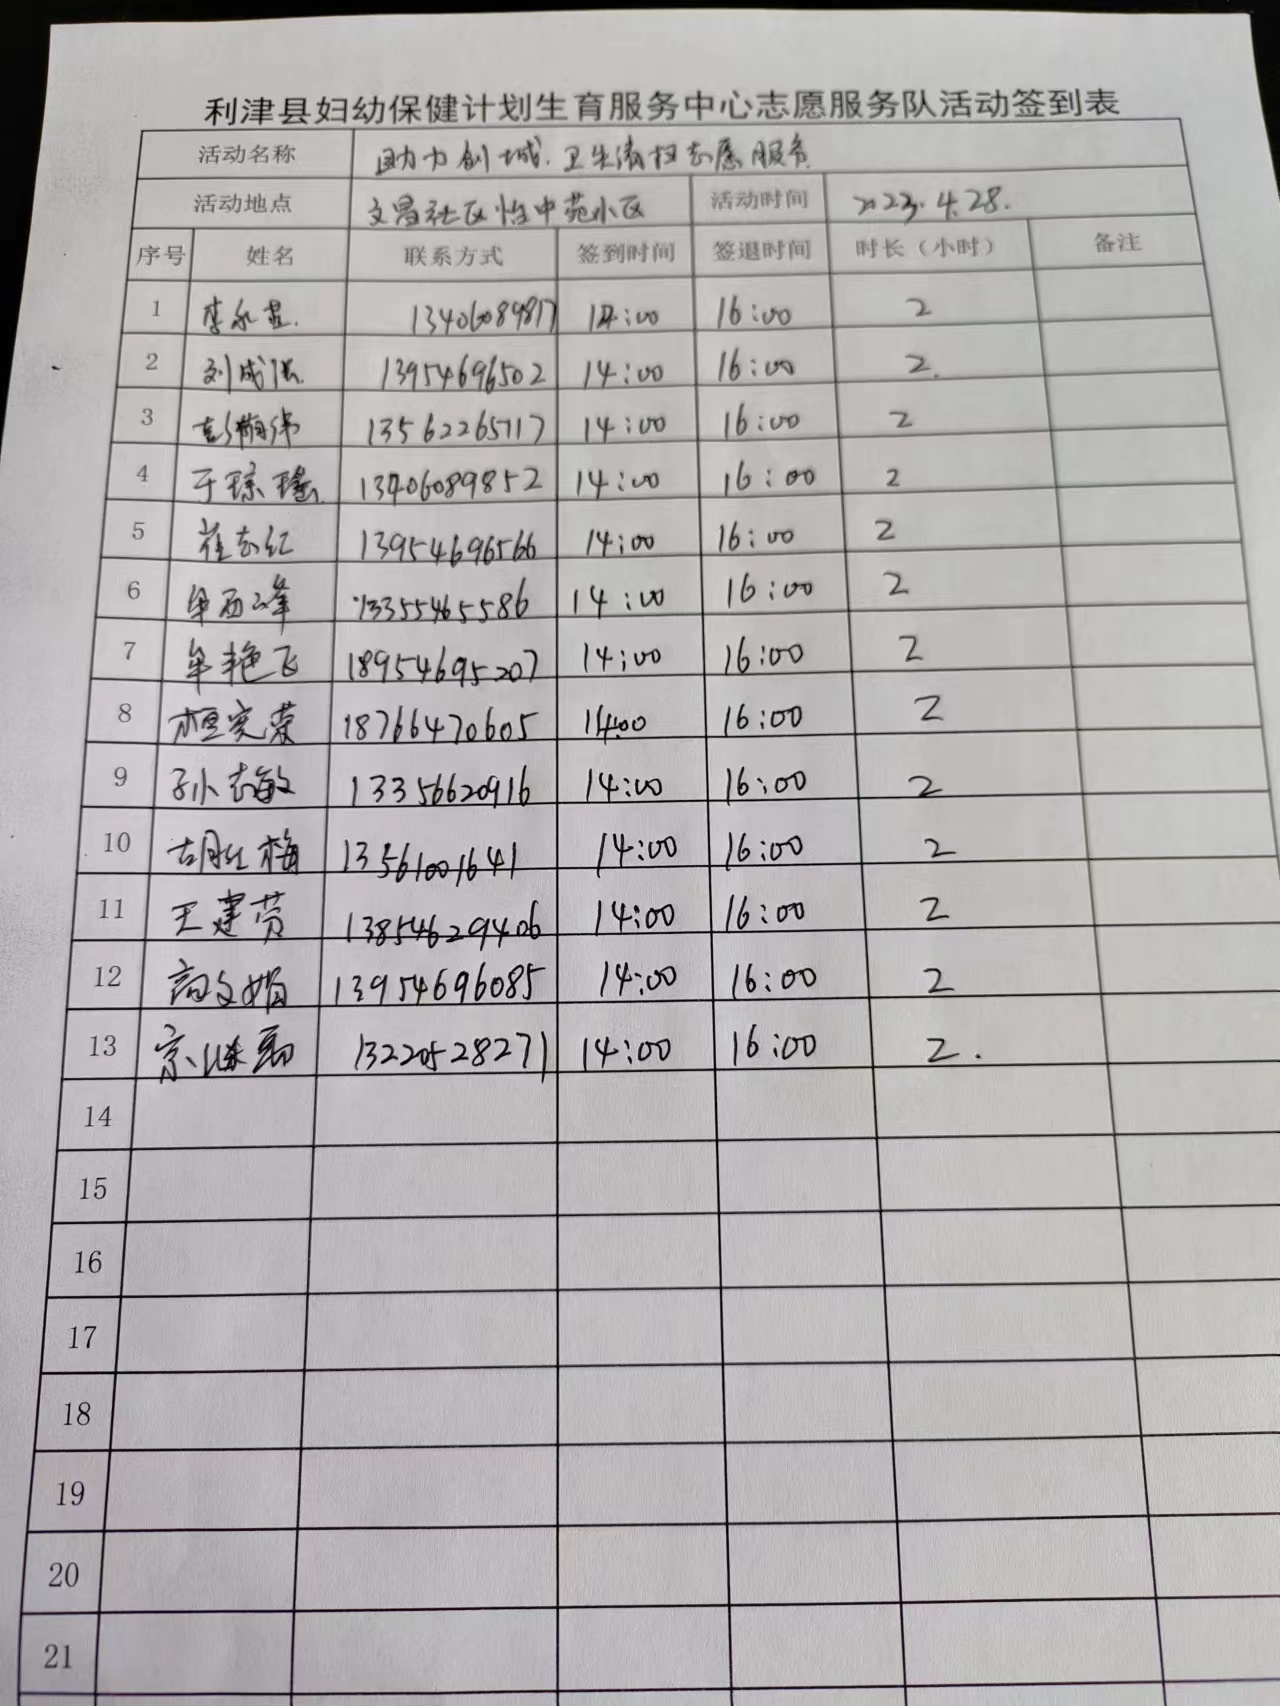 利津县妇幼保健计划生育服务中心志愿服务队活动签到表
活动名称 助力创城.卫生清扫志愿服务
活动地点 文昌社区怡中苑小区 活动时间 2023.4.28.
序号 姓名 联系方式 签到时间 签退时间 时长（小时） 备注
1 李永 13406089817 14:00 16:00 2
2 刘成 13954696502 14:00 16:00 2.
3 彭 13562265717 14:00 16:00 2
4 于琼瑶 13406089852 14:00 16:00 2
5 崔志红 13954696566 14:00 16:00 2
6 牟西峰 13355465586 14:00 16:00 2
7 牟艳飞 18954695207 14:00 16:00 2
8 桓宪荣 18766470605 14:00 16:00 2
9 孙志敏 13356620916 14:00 16:00 2
10 胡红梅 13561001641 14:00 16:00 2
11 王建芳 13854629406 14:00 16:00 2
12 高文娟 13954696085 14:00 16:00 2
13 宗继 13220528271 14:00 16:00 2.
14
15
16
17
18
19
20
21